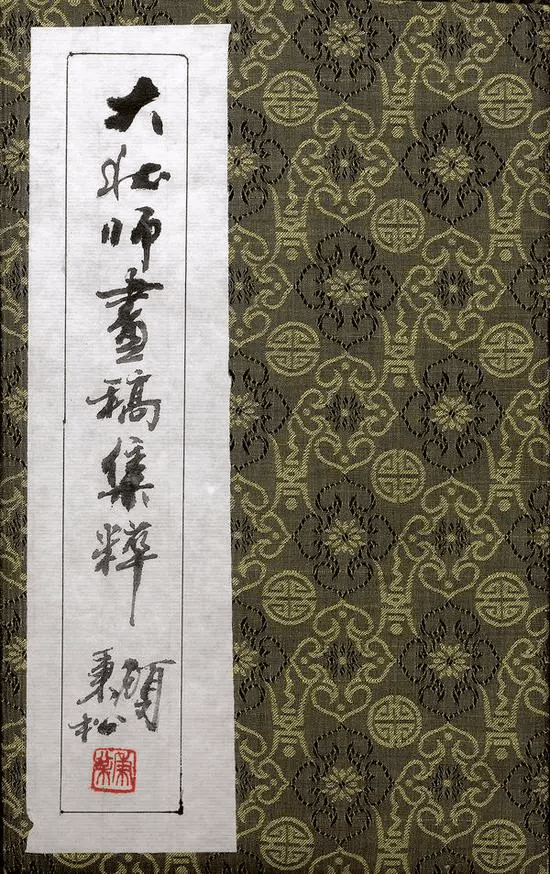 大壮师畫稿集粹
秉松